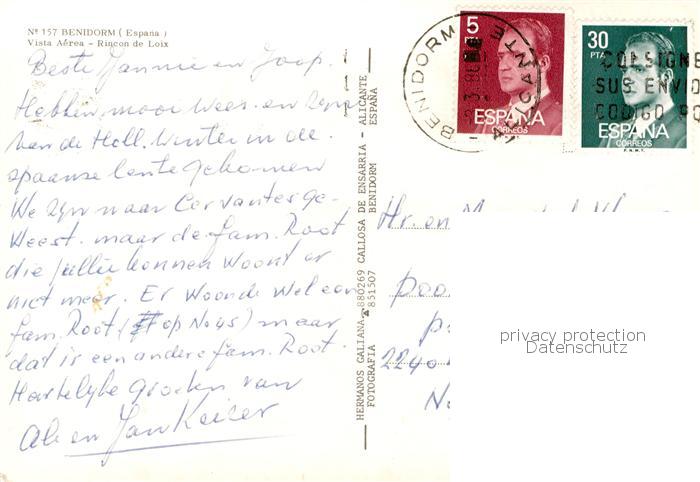 Nº 157 BENIDORM ( España )
Vista Aérea - Rincon de Loix
Beste Jannie en Joop.
Hebben mooi weer en zyn
van de Holl. Winter in de
spaanse lente gekomen
We zyn naar Cervantes ge-
Weest. maar de fam. Root
die jullie kennen Woont er
niet meer. Er Woonde Wel een
fam. Root (op No 45) maar
dat is een andere fam. Root.
Hartelyke groeten van
Ab en Jan Keizer
HERMANOS GALIANA 880269 CALLOSA DE ENSARRIA - ALICANTE
FOTOGRAFIA 851507 BENIDORM ESPAÑA
BENIDORM
ALICANTE
5
PTA
ESPAÑA
CORREOS
F.N.M.T.
30
PTA
ESPAÑA
CORREOS
F.N.M.T.
CONSIGNE
SUS ENVIO
CODIGO PO
Hr. en
2240
privacy protection
Datenschutz